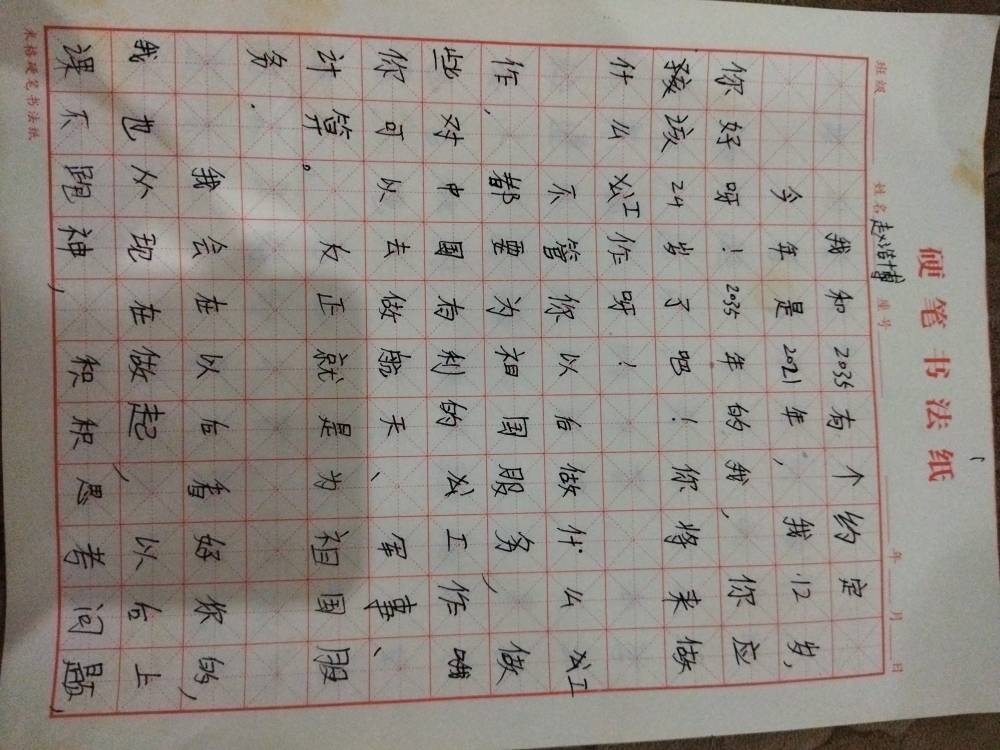 硬笔书法纸
班级 姓名 赵浩博 座号 年 月 日
我和2035有个约定
今年是2021年，我12岁，
你好呀！2035年的我，你应
该24岁了吧！你将来做
什么工作呀！
不管你以后做什么工
作，都要为祖国服务，做
些对中国有利的工作哦
你可以去做航天、军事、
计算。反正就是为祖国服
务.
我会在以后看好你的，
我也从现在做起，以后上
课不跑神，积积思考问题，
米格硬笔书法纸